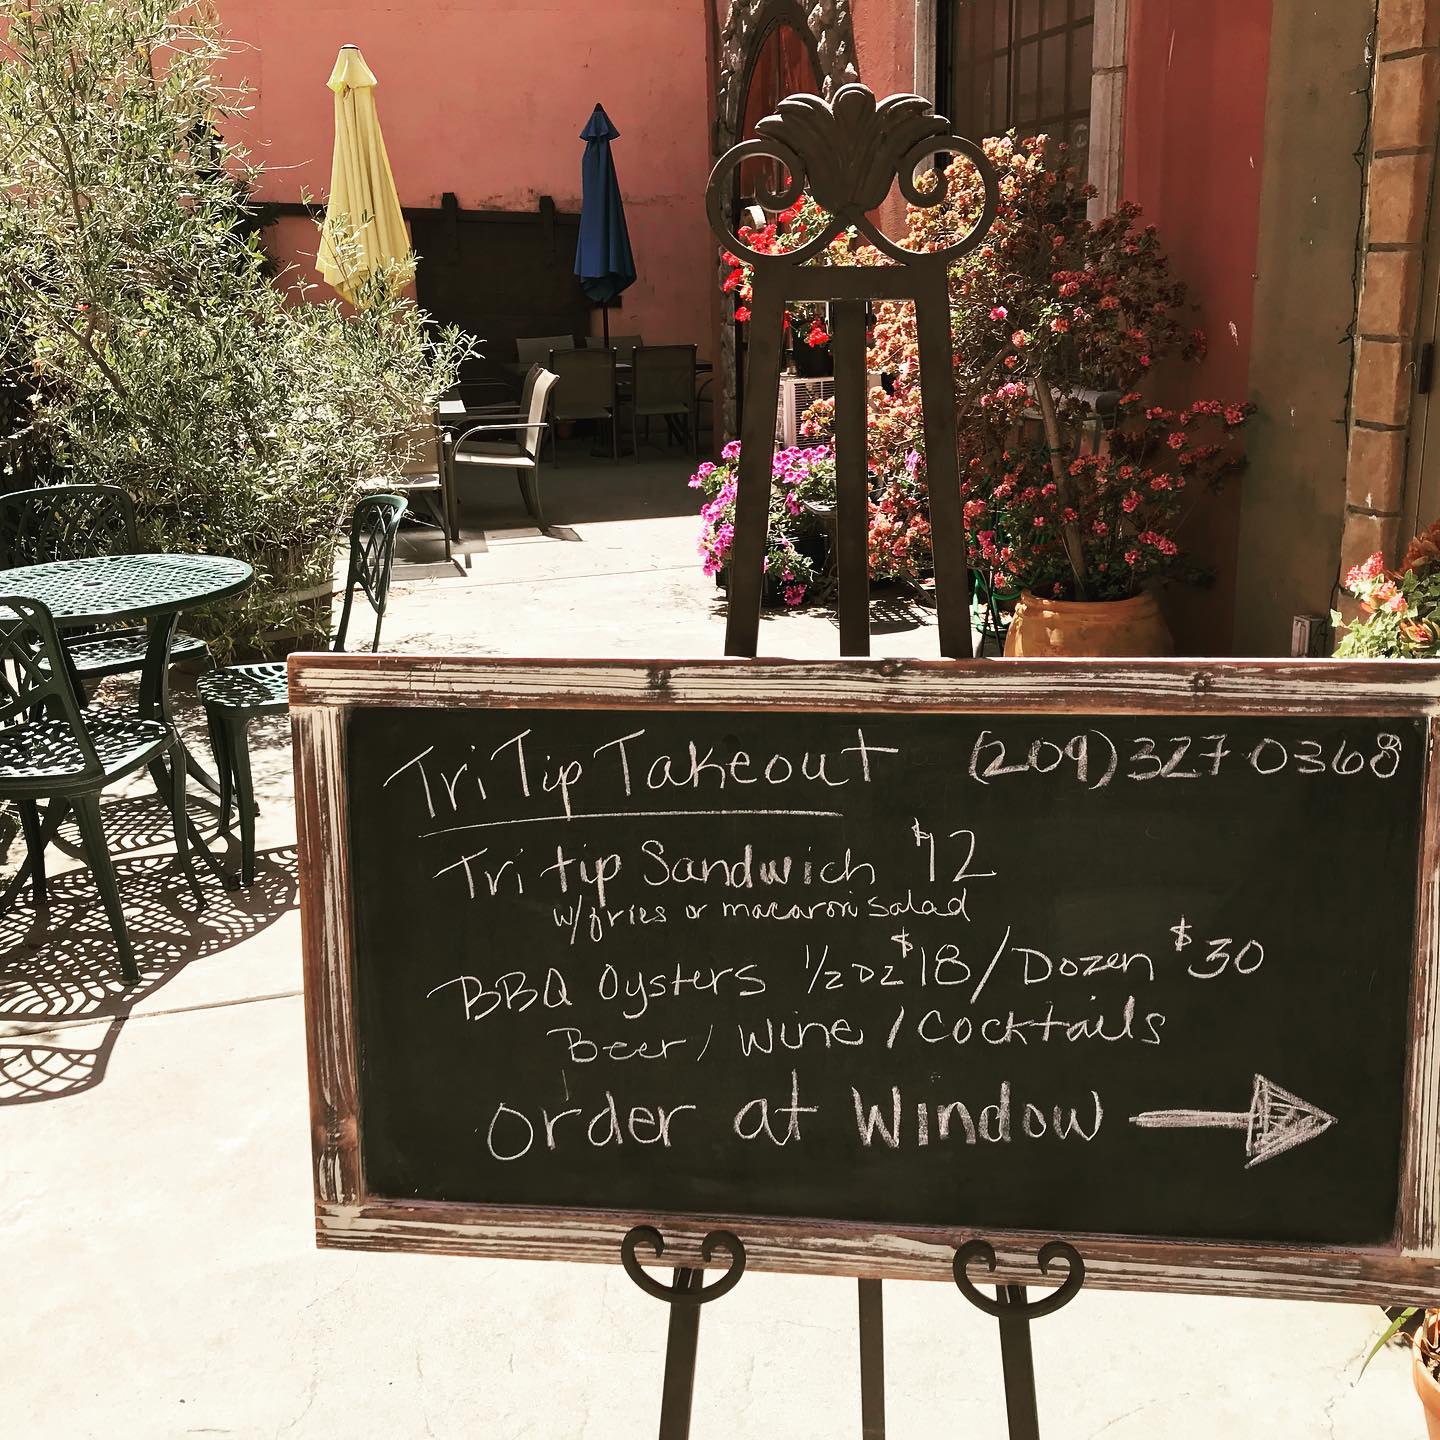 Tri Tip Takeout (209) 327 0368
Tri tip Sandwich $12
w/fries or macaroni salad
BBQ Oysters 1/2 DZ $18/Dozen $30
Beer/Wine/Cocktails
Order at Window